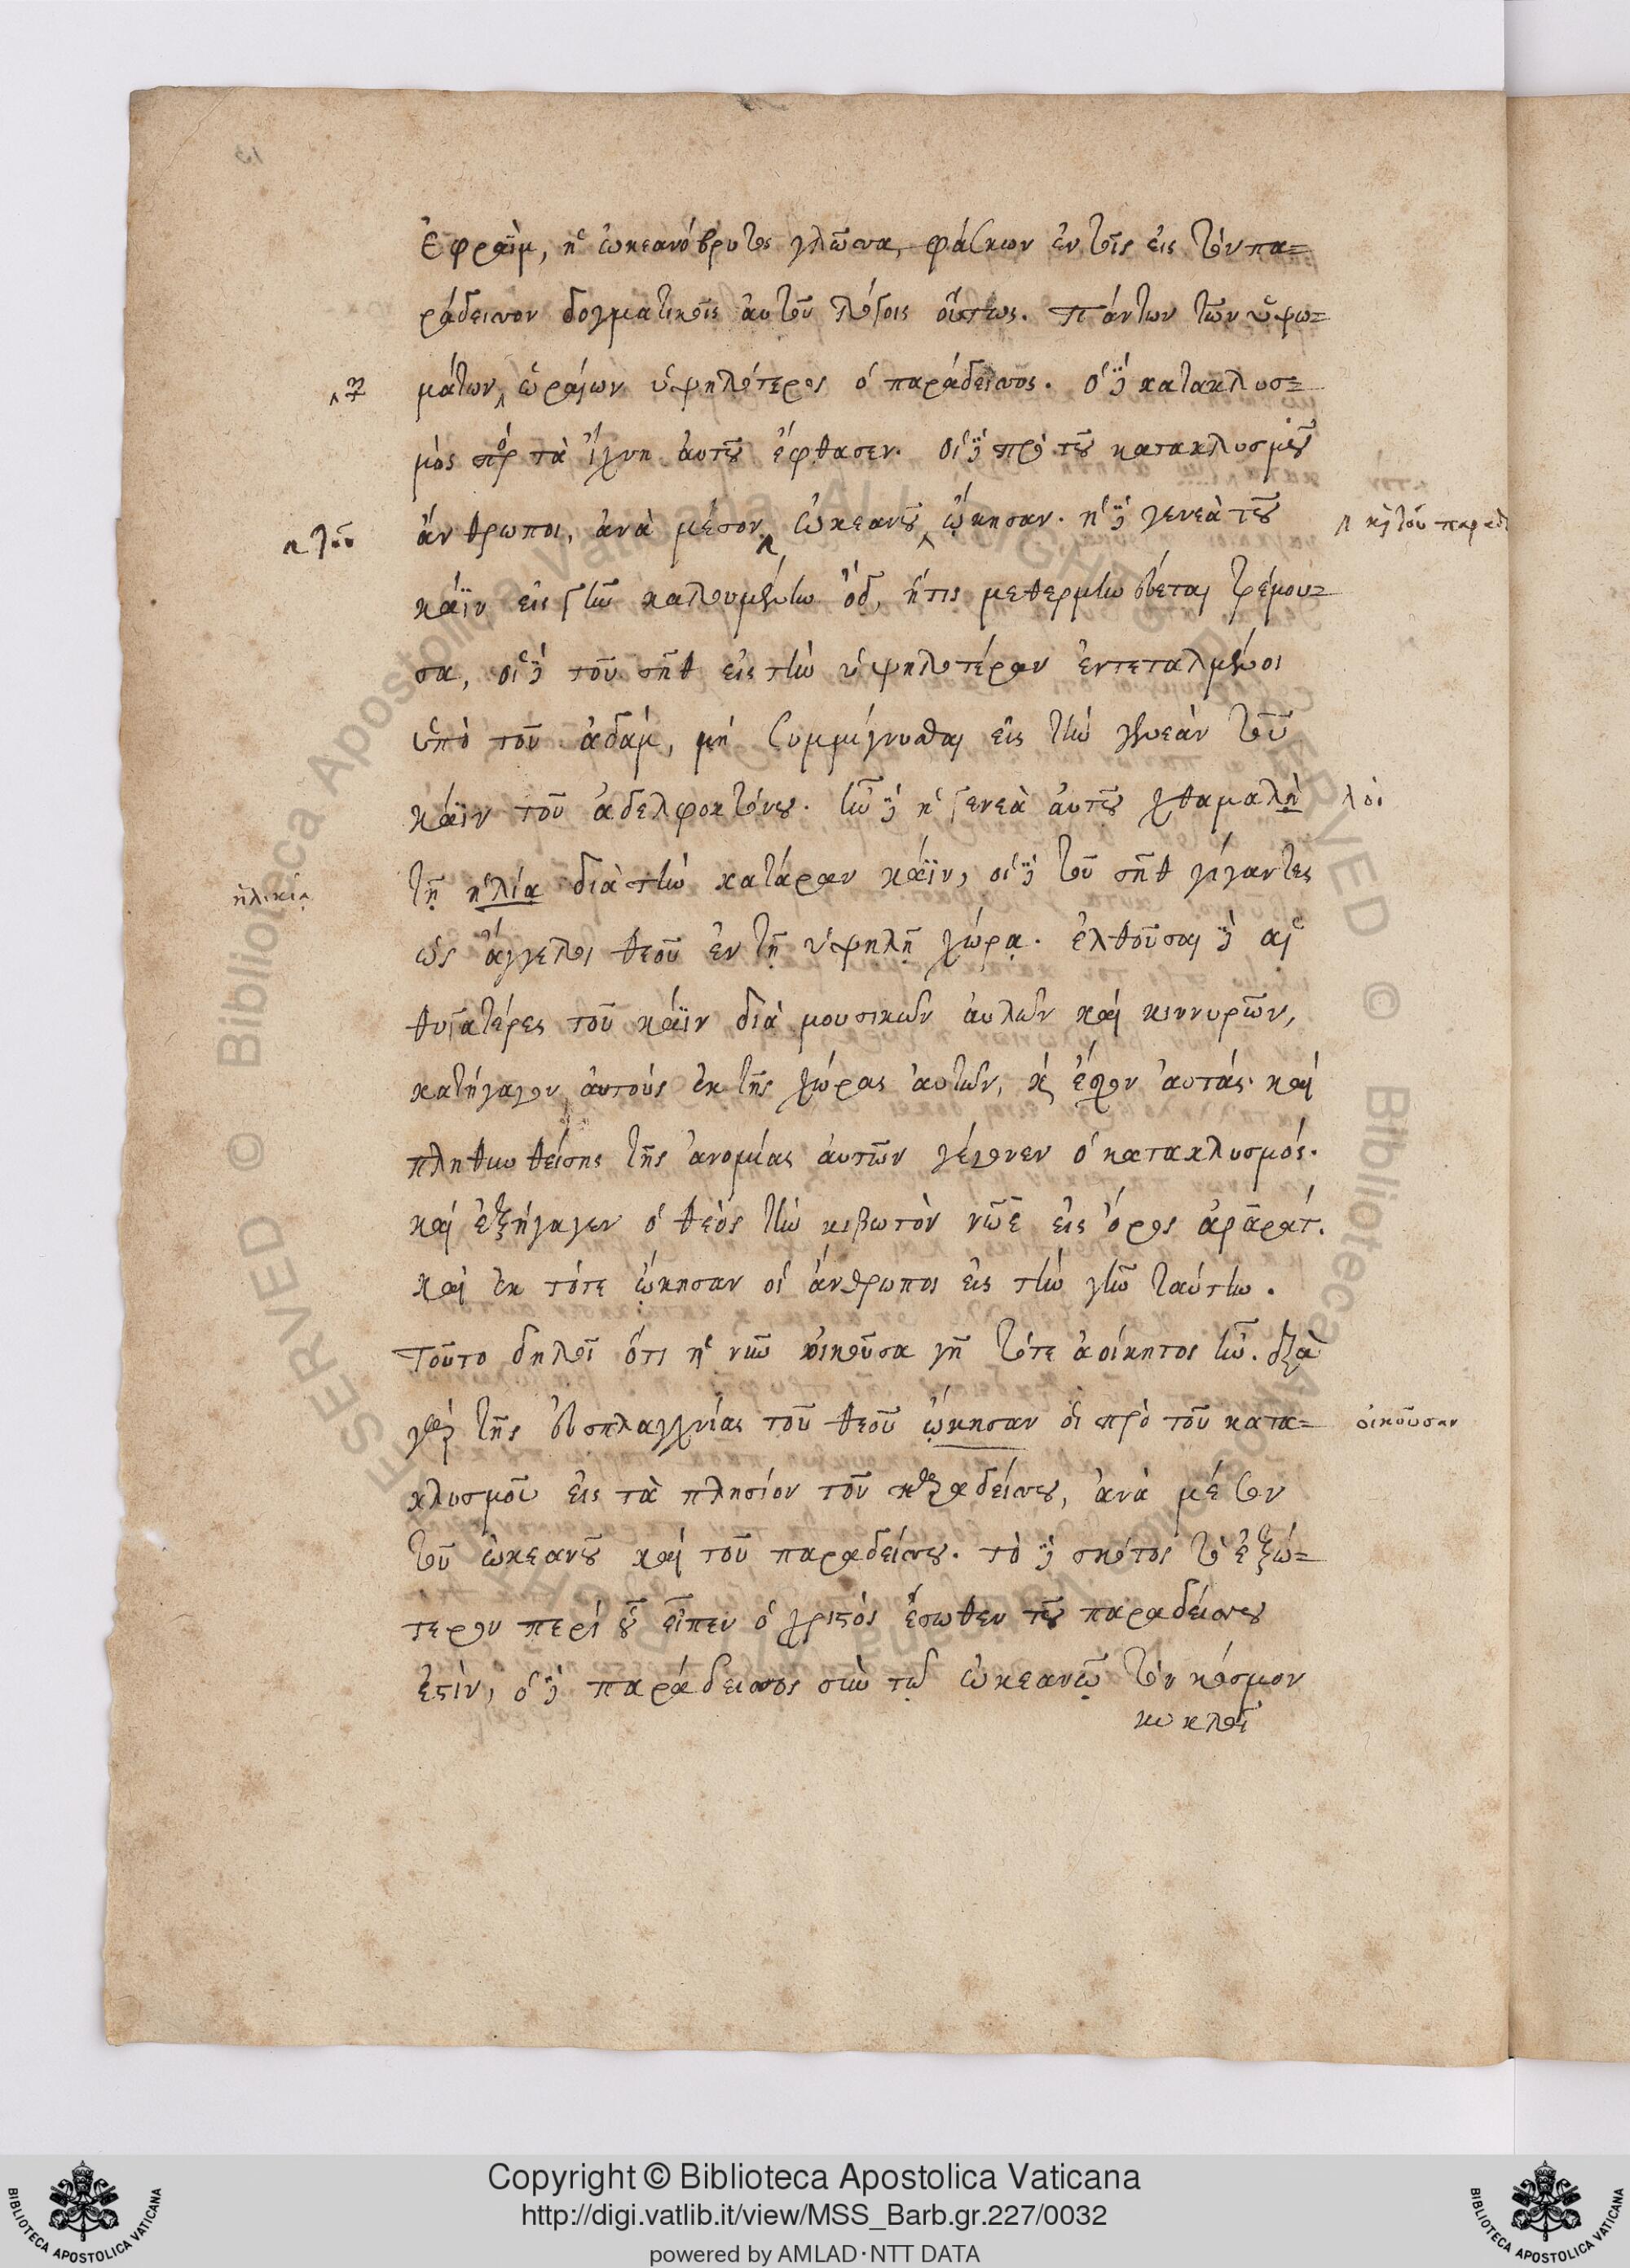 ἐφραῒμ, ἡ ὠκεανόβρυτος γλῶσσα, φάσκων ἐν τοῖς εἰς τὸν πα=
ράδεισον δογματικοῖς αὐτοῦ λόγοις οὕτως. πάντων τῶν ὑψω=
μάτων ‸ ὡραίων ὑψηλότερος ὁ παράδεισος. ὁ δὲ κατακλυσ=
μὸς πρ τὰ ἴχνη αὐτοῦ ἔφθασεν. οἱ δὲ πρὸ τοῦ κατακλυσμοῦ
‸ τοῦ
ἄνθρωποι, ἀνὰ μέσον ‸ ὠκεανοῦ ‸ ᾤκησαν. ἡ δὲ γενεὰ τοῦ
‸ κὶ τοῦ παραδ
κάϊν εἰς γῆν καλουμένην ὀδ, ἥτις μεθερμηνεύεται τρέμου=
σα, οἱ δὲ τοῦ σὴθ εἰς τὴν ὑψηλοτέραν ἐντεταλμένοι
ὑπὸ τοῦ ἀδὰμ, μὴ συμμίγνυσθαι εἰς τὴν γενεὰν τοῦ
κάϊν τοῦ ἀδελφοκτόνου. ἦν δὲ ἡ γενεὰ αὐτοῦ χθαμαλὴ
λοὶ
ἡλικίᾳ
τῇ ἡλίᾳ διὰ τὴν κατάραν κάϊν, οἱ δὲ τοῦ σὴθ γίγαντες
ὡς ἄγγελοι θεοῦ ἐν τῇ ὑψηλῇ χώρᾳ. ἐλθοῦσαι δὲ αἱ
θυγατέρες τοῦ κάϊν διὰ μουσικῶν αὐλῶν καὶ κιννυρῶν,
κατήγαγον αὐτοὺς ἐκ τῆς χώρας αὐτῶν, κὶ ἔσχον αὐτάς. καὶ
πληθυνθείσης τῆς ἀνομίας αὐτῶν γέγονεν ὁ κατακλυσμός.
καὶ ἐξήγαγεν ὁ θεὸς τὴν κιβωτὸν νῶε εἰς ὄρος ἀραρατ.
καὶ ἐκ τότε ᾤκησαν οἱ ἄνθρωποι εἰς τὴν γῆν ταύτην.
τοῦτο δηλοῖ ὅτι ἡ νῦν οἰκοῦσα γῆ τότε ἀοίκητος ἦν. διὰ
γὰρ τῆς εὐσπλαγχνίας τοῦ θεοῦ ᾤκησαν οἱ πρὸ τοῦ κατα=
οἰκοῦσαν
κλυσμοῦ εἰς τὰ πλησίον τοῦ παραδείσου, ἀνὰ μέσον
τοῦ ὠκεανοῦ καὶ τοῦ παραδείσου. τὸ δὲ σκότος τὸ ἐξώ=
τερον περὶ οὗ εἶπεν ὁ χριστὸς ἔσωθεν τοῦ παραδείσου
ἐστὶν, ὁ δὲ παράδεισος σὺν τῷ ὠκεανῷ τὸν κόσμον
κυκλοῖ
Copyright © Biblioteca Apostolica Vaticana
http://digi.vatlib.it/view/MSS_Barb.gr.227/0032
powered by AMLAD·NTT DATA
BIBLIOTECA APOSTOLICA VATICANA
BIBLIOTECA APOSTOLICA VATICANA